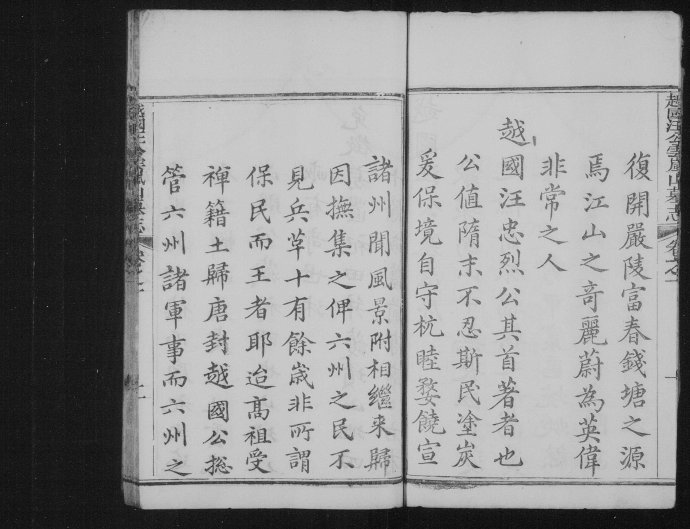 越國汪公雲嵐山墓志 卷之一
復開嚴陵富春錢塘之源
焉江山之竒麗蔚為英偉
非常之人
越國汪忠烈公其首著者也
公值隋末不忍斯民塗炭
爰保境自守杭睦婺饒宣
諸州聞風景附相繼来歸
因撫集之俾六州之民不
見兵革十有餘歲非所謂
保民而王者耶迨髙祖受
禅籍土歸唐封越國公捴
管六州諸軍事而六州之